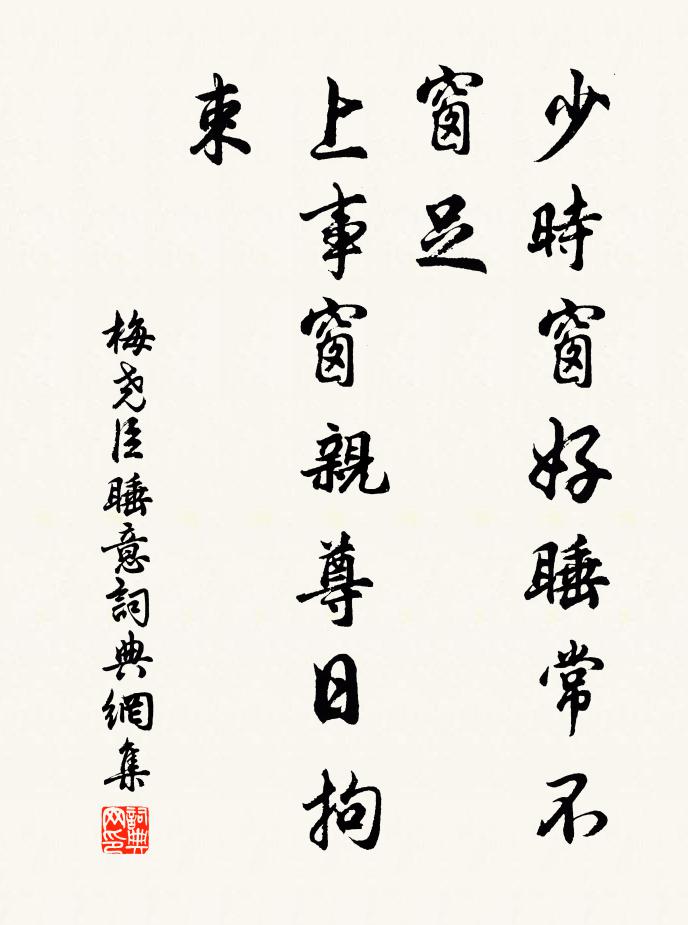 少時窗好睡常不
窗足
上事窗親尊日拘
束
梅堯臣睡意詞典網集
詞典網印